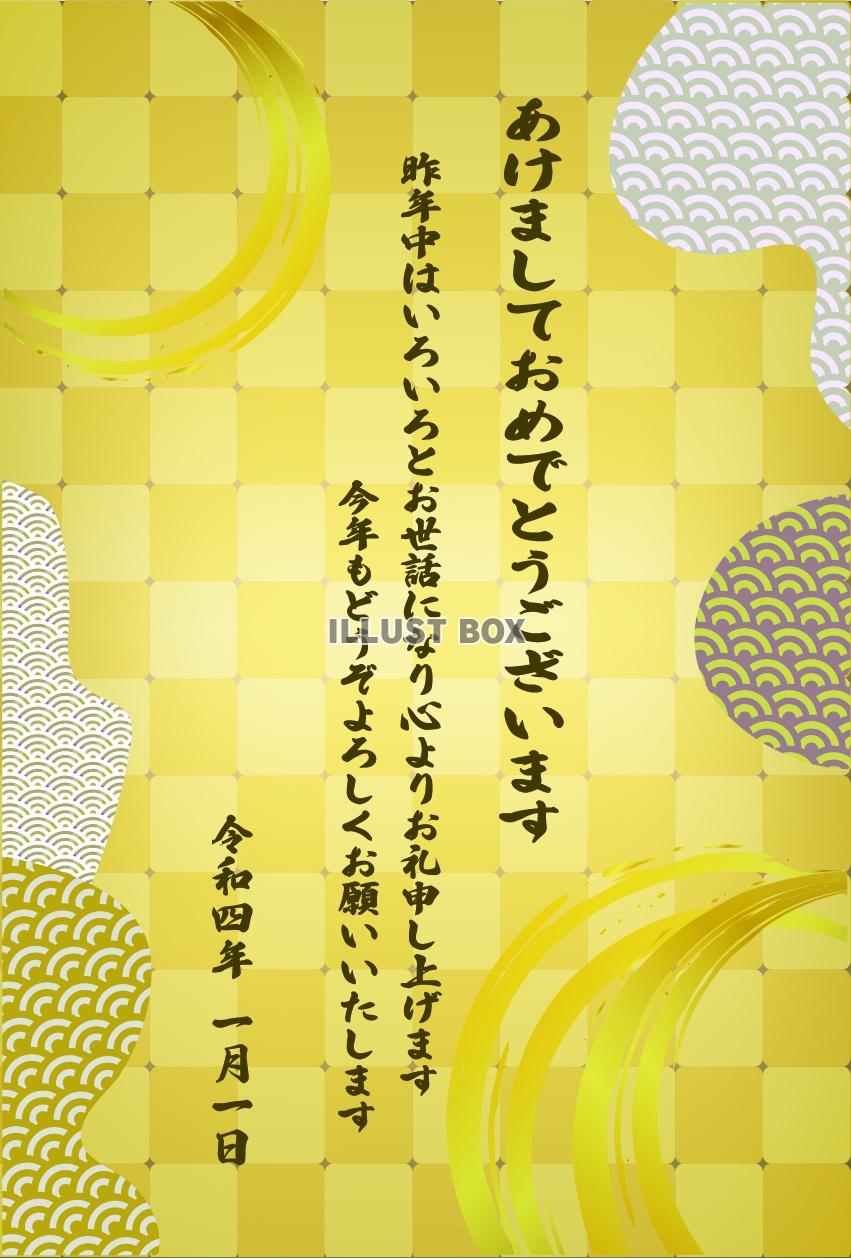 あけましておめでとうございます
昨年中はいろいろとお世話になり心よりお礼申し上げます
今年もどうぞよろしくお願いいたします
令和四年 一月一日
ILLUST BOX